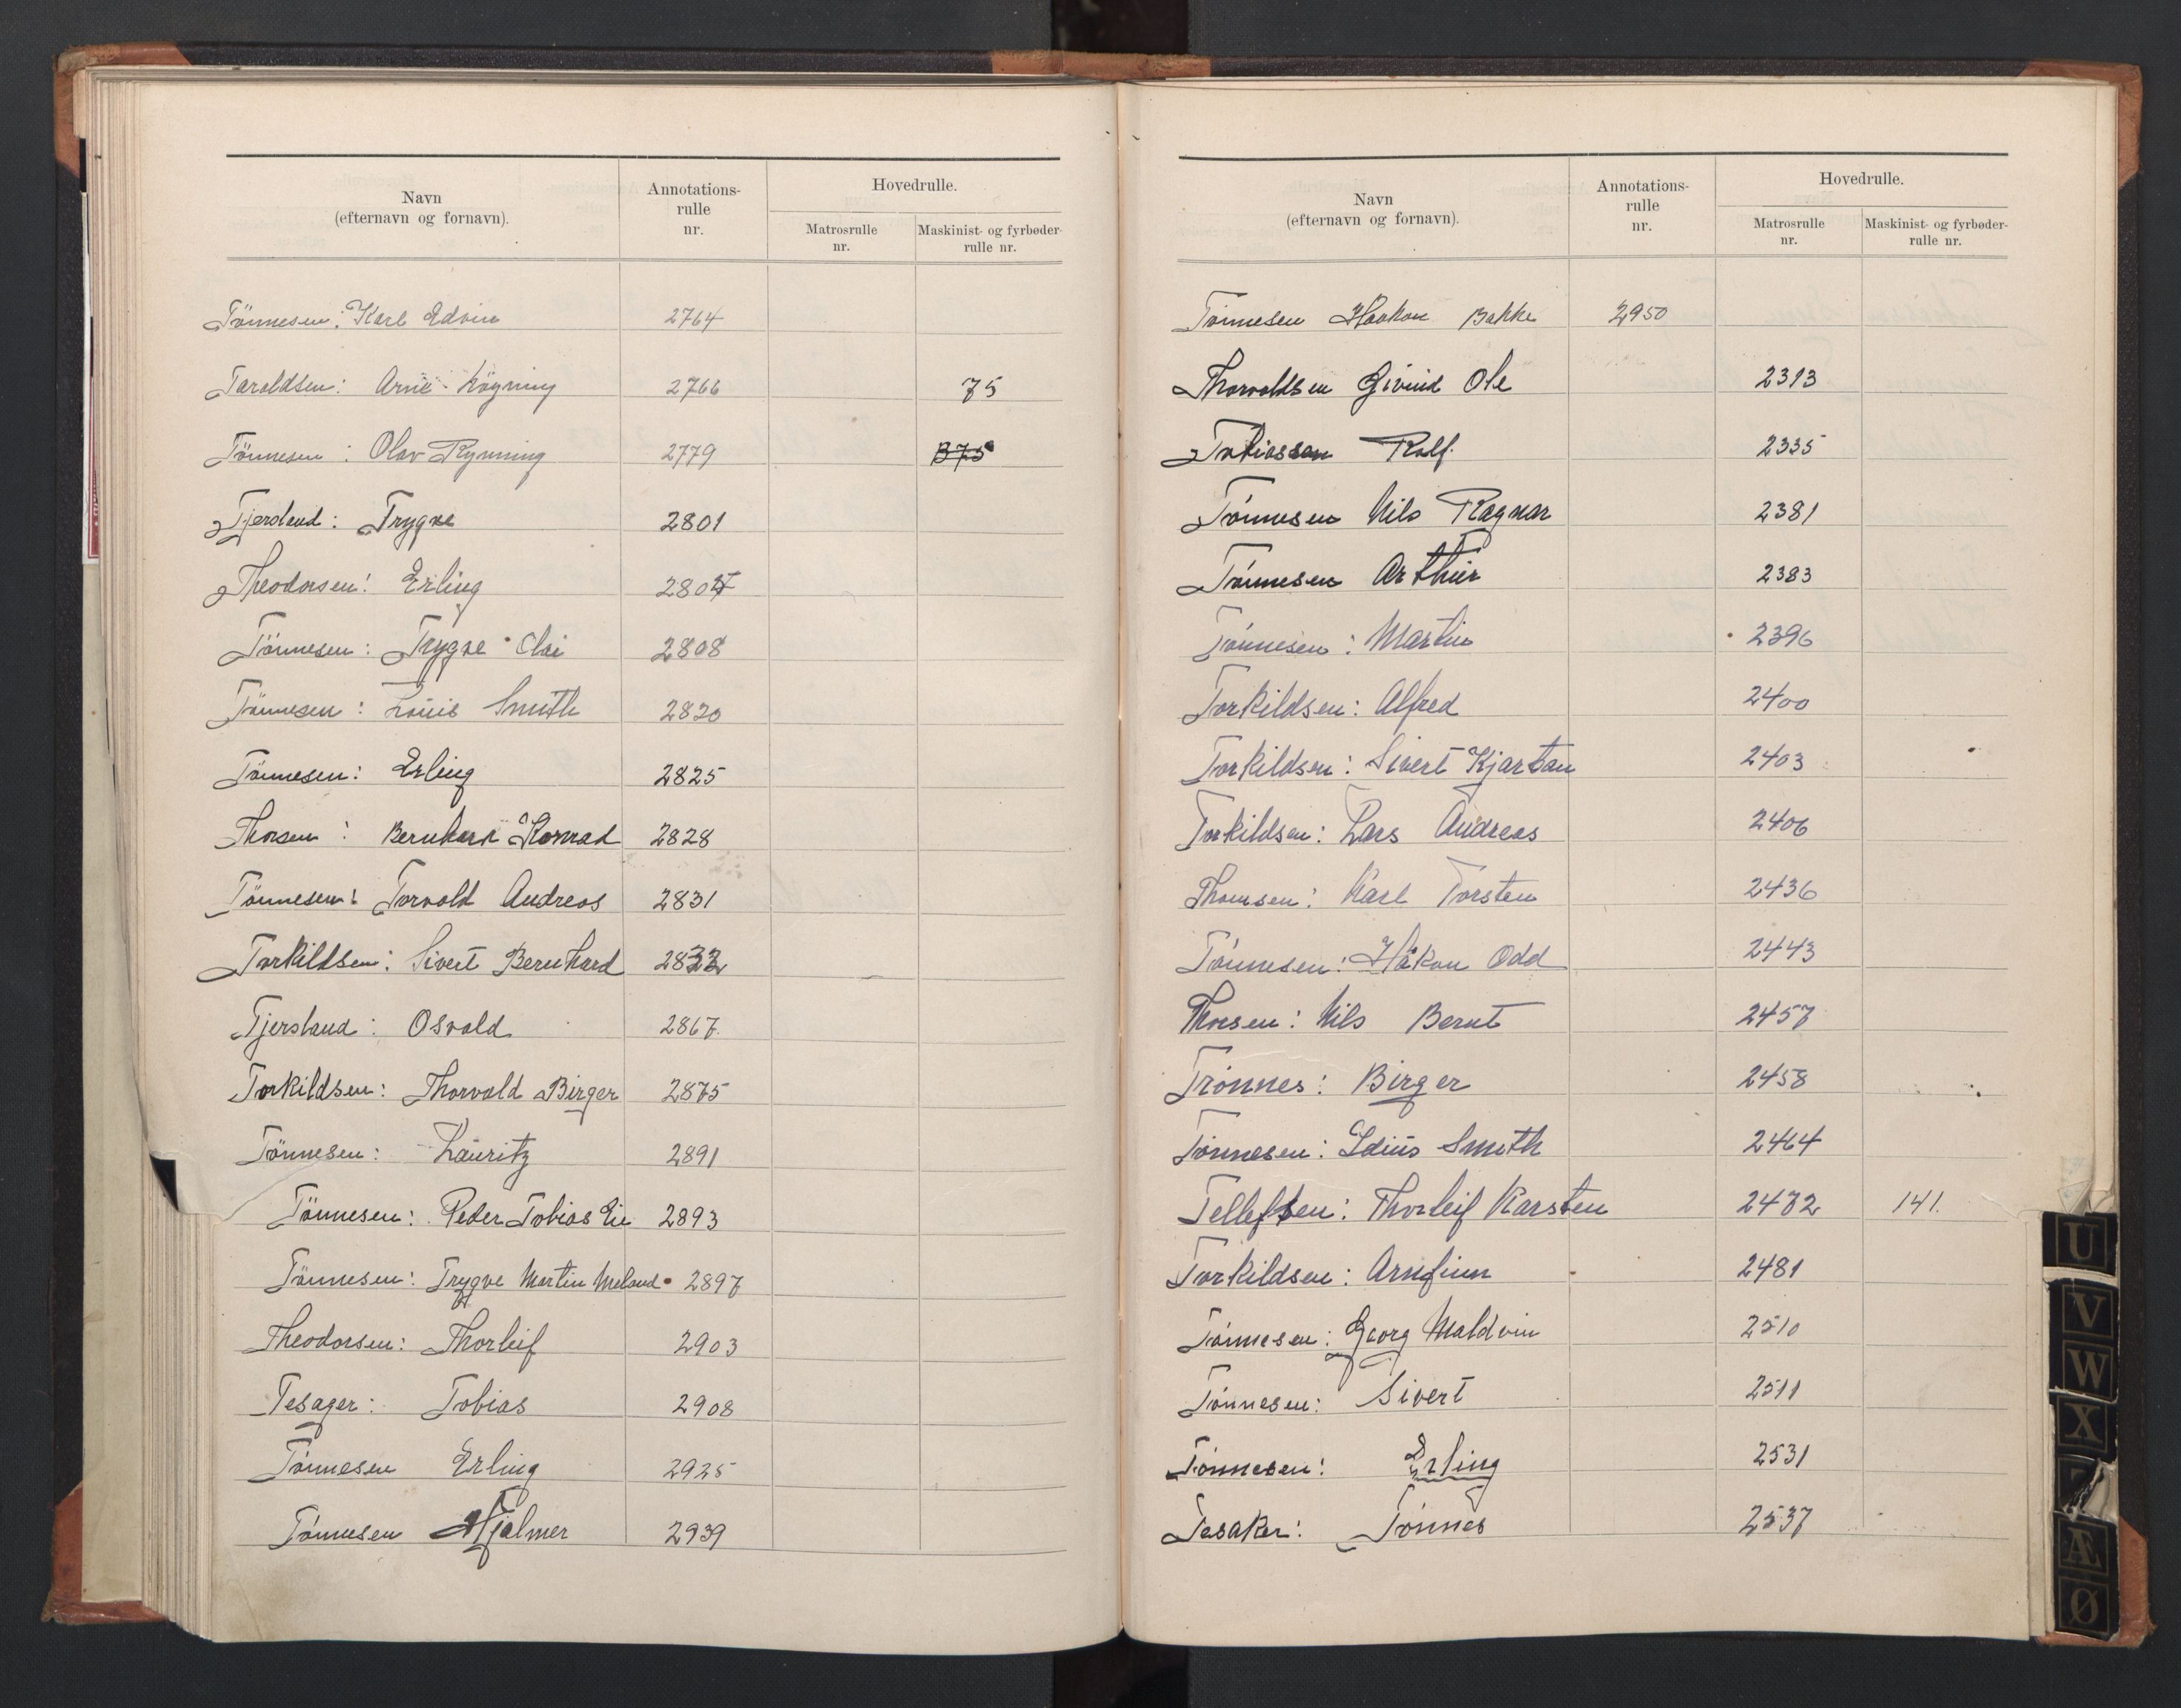 Navn (efternavn og fornavn). Annotations-rulle nr. Hovedrulle. Matrosrulle nr. Maskinist- og fyrbøder-rulle nr.
Tönnesen: Karl Edvin 2764
Taraldsen: Arne 2766 75
Tönnesen: Olav Rynning 2779 B75
Tjersland: Trygve 2801
Theodorsen: Erling 2807
Tönnesen: Trygve Olai 2808
Tönnesen: Louis Smith 2820
Tönnesen: Erling 2825
Thorsen: Bernhard Konrad 2828
Tönnesen: Torvald Andreas 2831
Torkildsen: Sivert Bernhard 2832
Tjersland: Osvald 2867
Torkildsen: Thorvald Birger 2875
Tönnesen: Lauritz 2891
Tönnesen: Peder Tobias Eie 2893
Tönnesen: Trygve Martin Meland 2897
Theodorsen: Thorleif 2903
Tesager: Tobias 2908
Tönnesen Erling 2925
Tönnesen Hjalmer 2939
Navn (efternavn og fornavn). Annotations-rulle nr. Hovedrulle. Matrosrulle nr. Maskinist- og fyrbøder-rulle nr.
Tönnesen Haakon Bakke 2950
Thorvaldsen Eivind Ole 2313
Tobiassen Rolf. 2335
Tönnesen Nils Ragnar 2381
Tönnesen Arthur 2383
Tönnesen: Martin 2396
Torkildsen: Alfred 2400
Torkildsen: Sivert Kjartan 2403
Torkildsen: Lars Andreas 2406
Thomsen: Karl Torsten 2436
Tönnesen: Håkon Odd 2443
Thorsen: Nils Bernt 2457
Trönnes: Birger 2458
Tönnesen: Smith 2464
Tellefsen: Thorleif Karsten 2472 141.
Torkildsen: Arnfinn 2481
Tönnesen: Georg Maldvin 2510
Tönnesen: Sivert 2511
Tönnesen: Erling 2531
Tesaker: Tönnes 2537
U
V
W
X
Æ
Ø